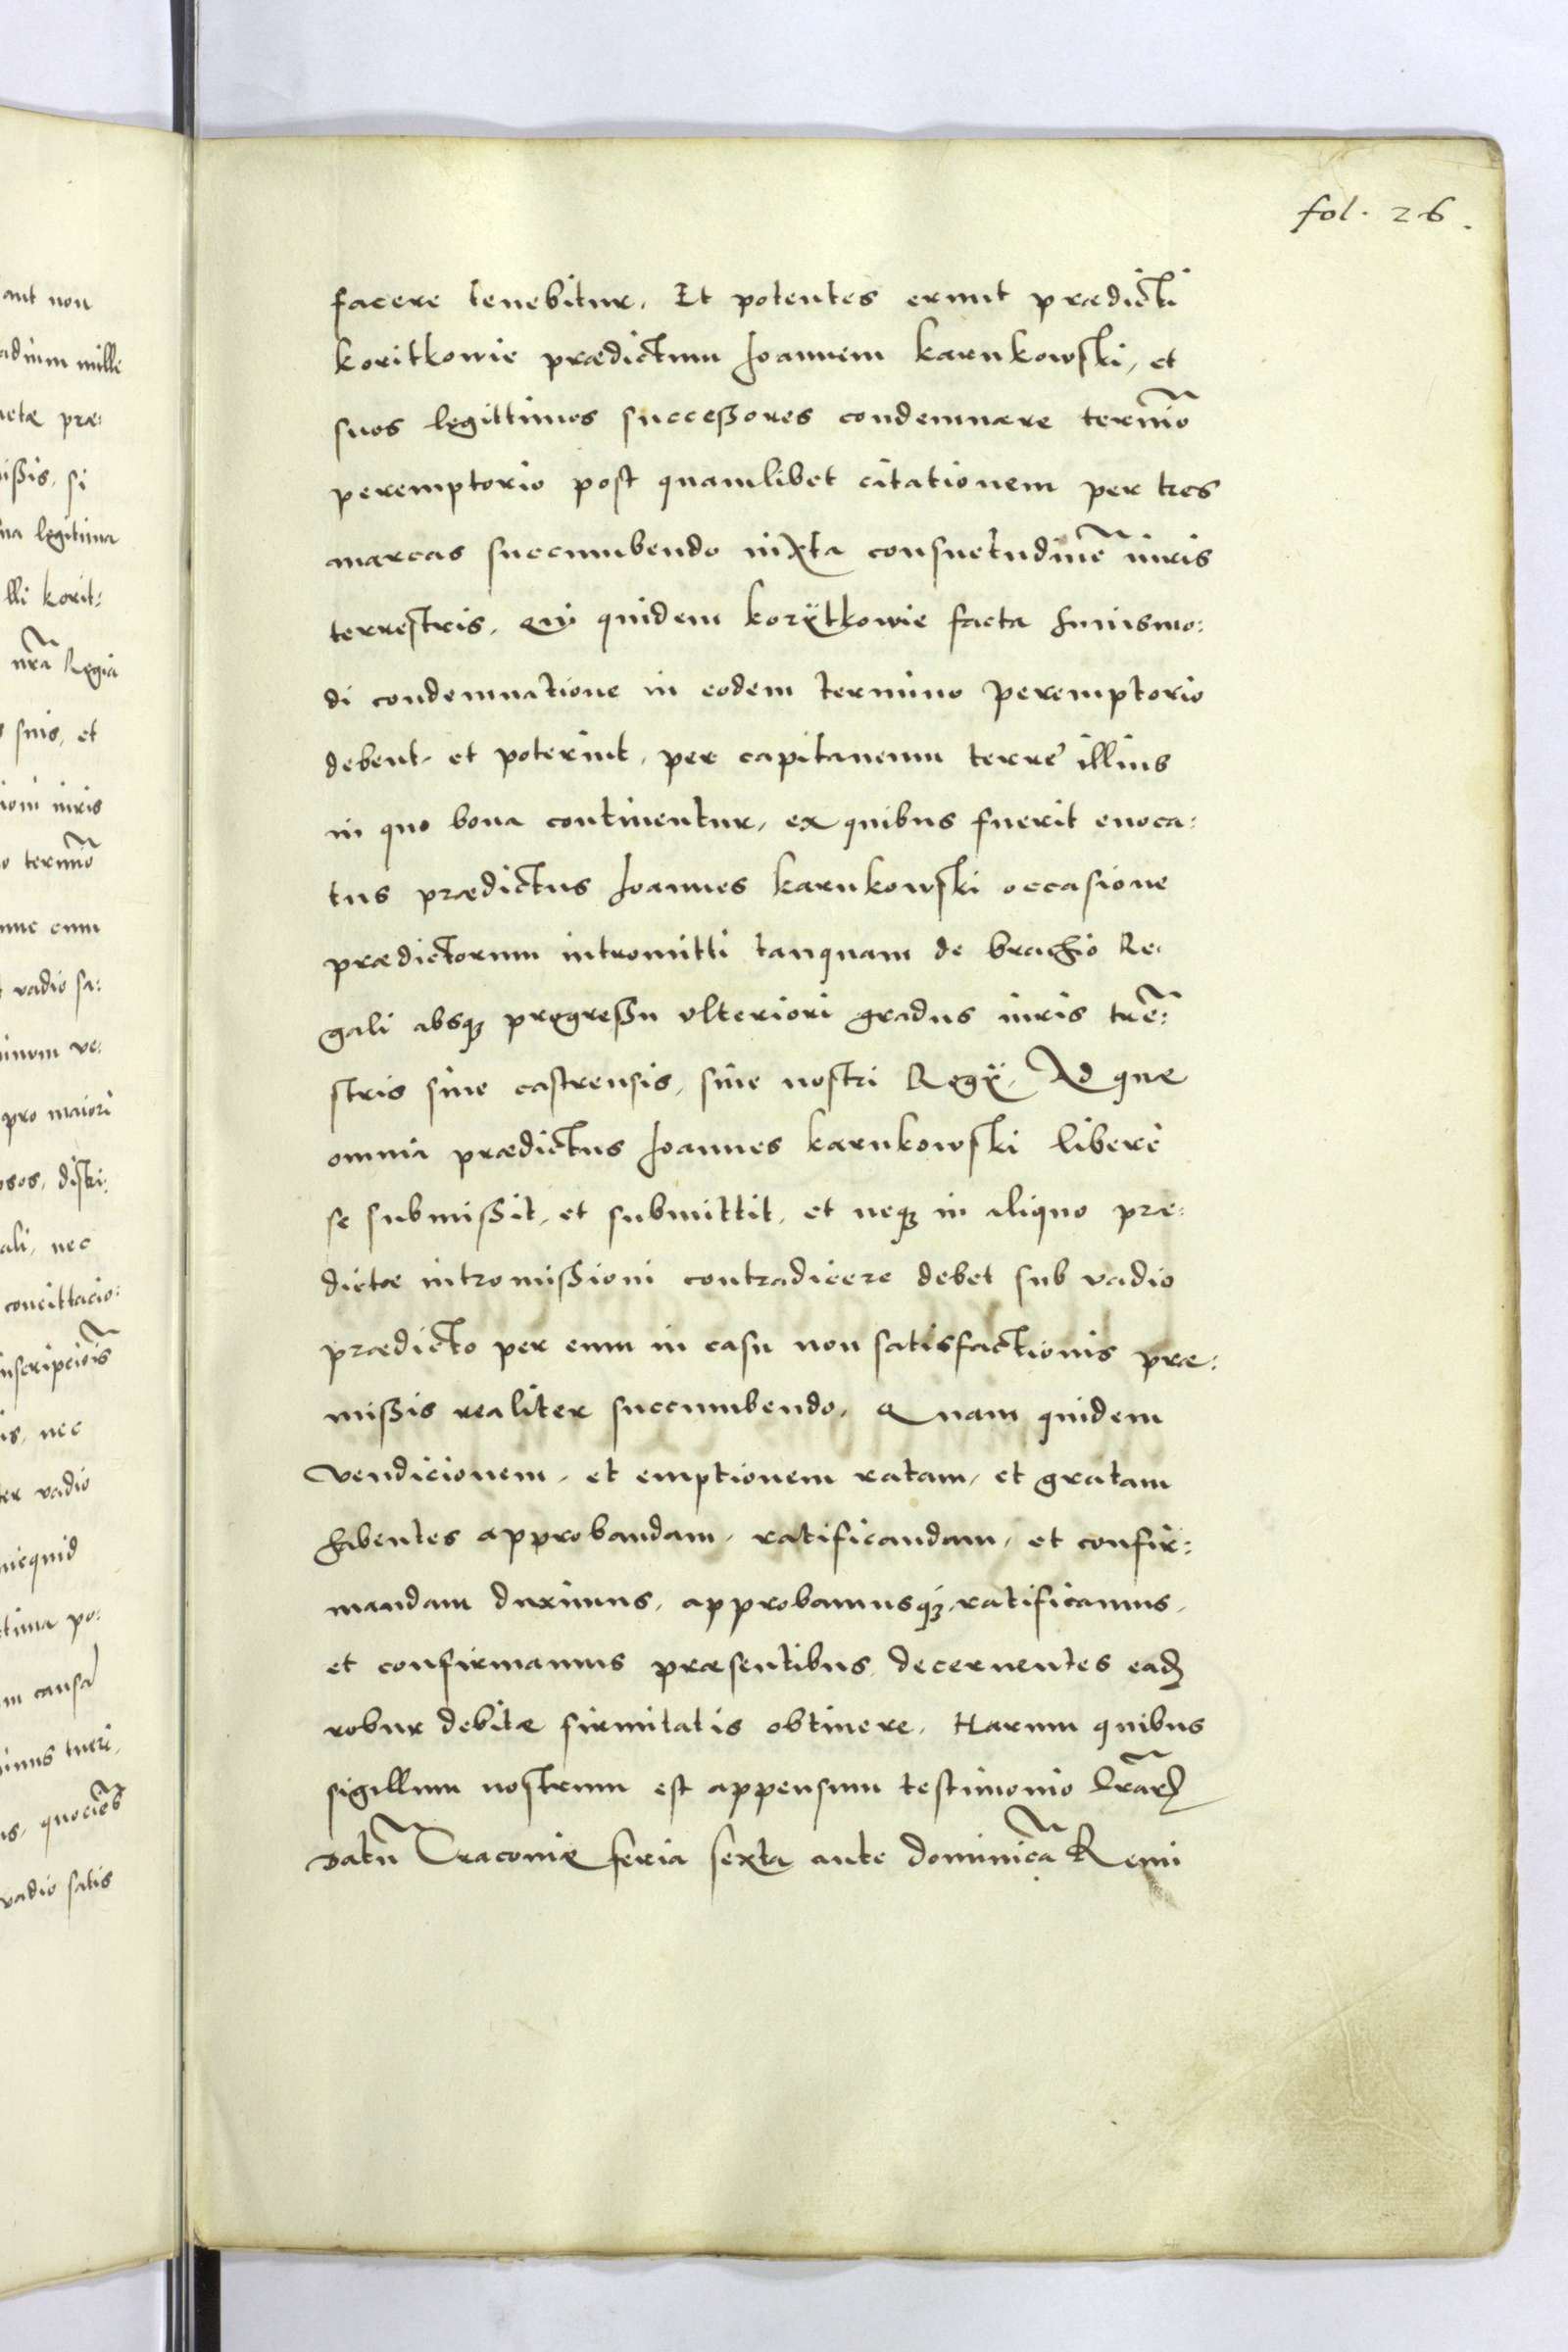 fol. 26.
facere tenebitur, Et potentes erunt prædicti
koritkowie prædictum Joannem karnkowski, et
suos legittimos succeßores condemnare termĩo
peremptorio post quamlibet citationem per tres
marcas succumbendo iuxta consuetudinẽ iuris
terrestris, Qui quidem korÿtkowie facta huiusmo:
di condemnatione in eodem termino peremptorio
debent, et poterint, per capitaneum terrę illius
in quo bona continentur, ex quibus fuerit euoca:
tus prædictus Joannes karnkowski occasione
prædictorum intromitti tanquam de brachio Re:
gali absq₃ progreßu vlteriori gradus iuris trẽ:
stris siue castrensis, siue nostri Regÿ, Ad quæ
omnia prædictus Joannes karnkowski liberè
se submißit, et submittit, et neq₃ in aliquo præ:
dictæ intromißioni contradicere debet sub vadio
prædicto per eum in casu non satisfactionis præ:
mißis realiter succumbendo, Quam quidem
vendicionem, et emptionem ratam, et gratam
hbentes approbandam, ratificandam, et confir:
mandam duximus, approbamusq₃, ratificamus,
et confirmamus præsentibus, decernentes eaꝺ
robur debitæ firmitatis obtinere, Harum quibus
sigillum nostrum est appensum testimonio lr̃aꝝ
datũ Craconiæ feria sexta ante dominicã Remi
aut non
adium mille
netæ præ:
ißis, si
na legitima
lli korit:
nr̃a Regia
suis, et
ioni iuris
o termĩo
unc cum
vadio sa:
pro maiori
osos, distri:
ali, nec
concittacio:
inscripciõis
is, nec
er vadio
nicquid
tima po:
m causã
imus tueri,
is, quociẽs
vadio satis